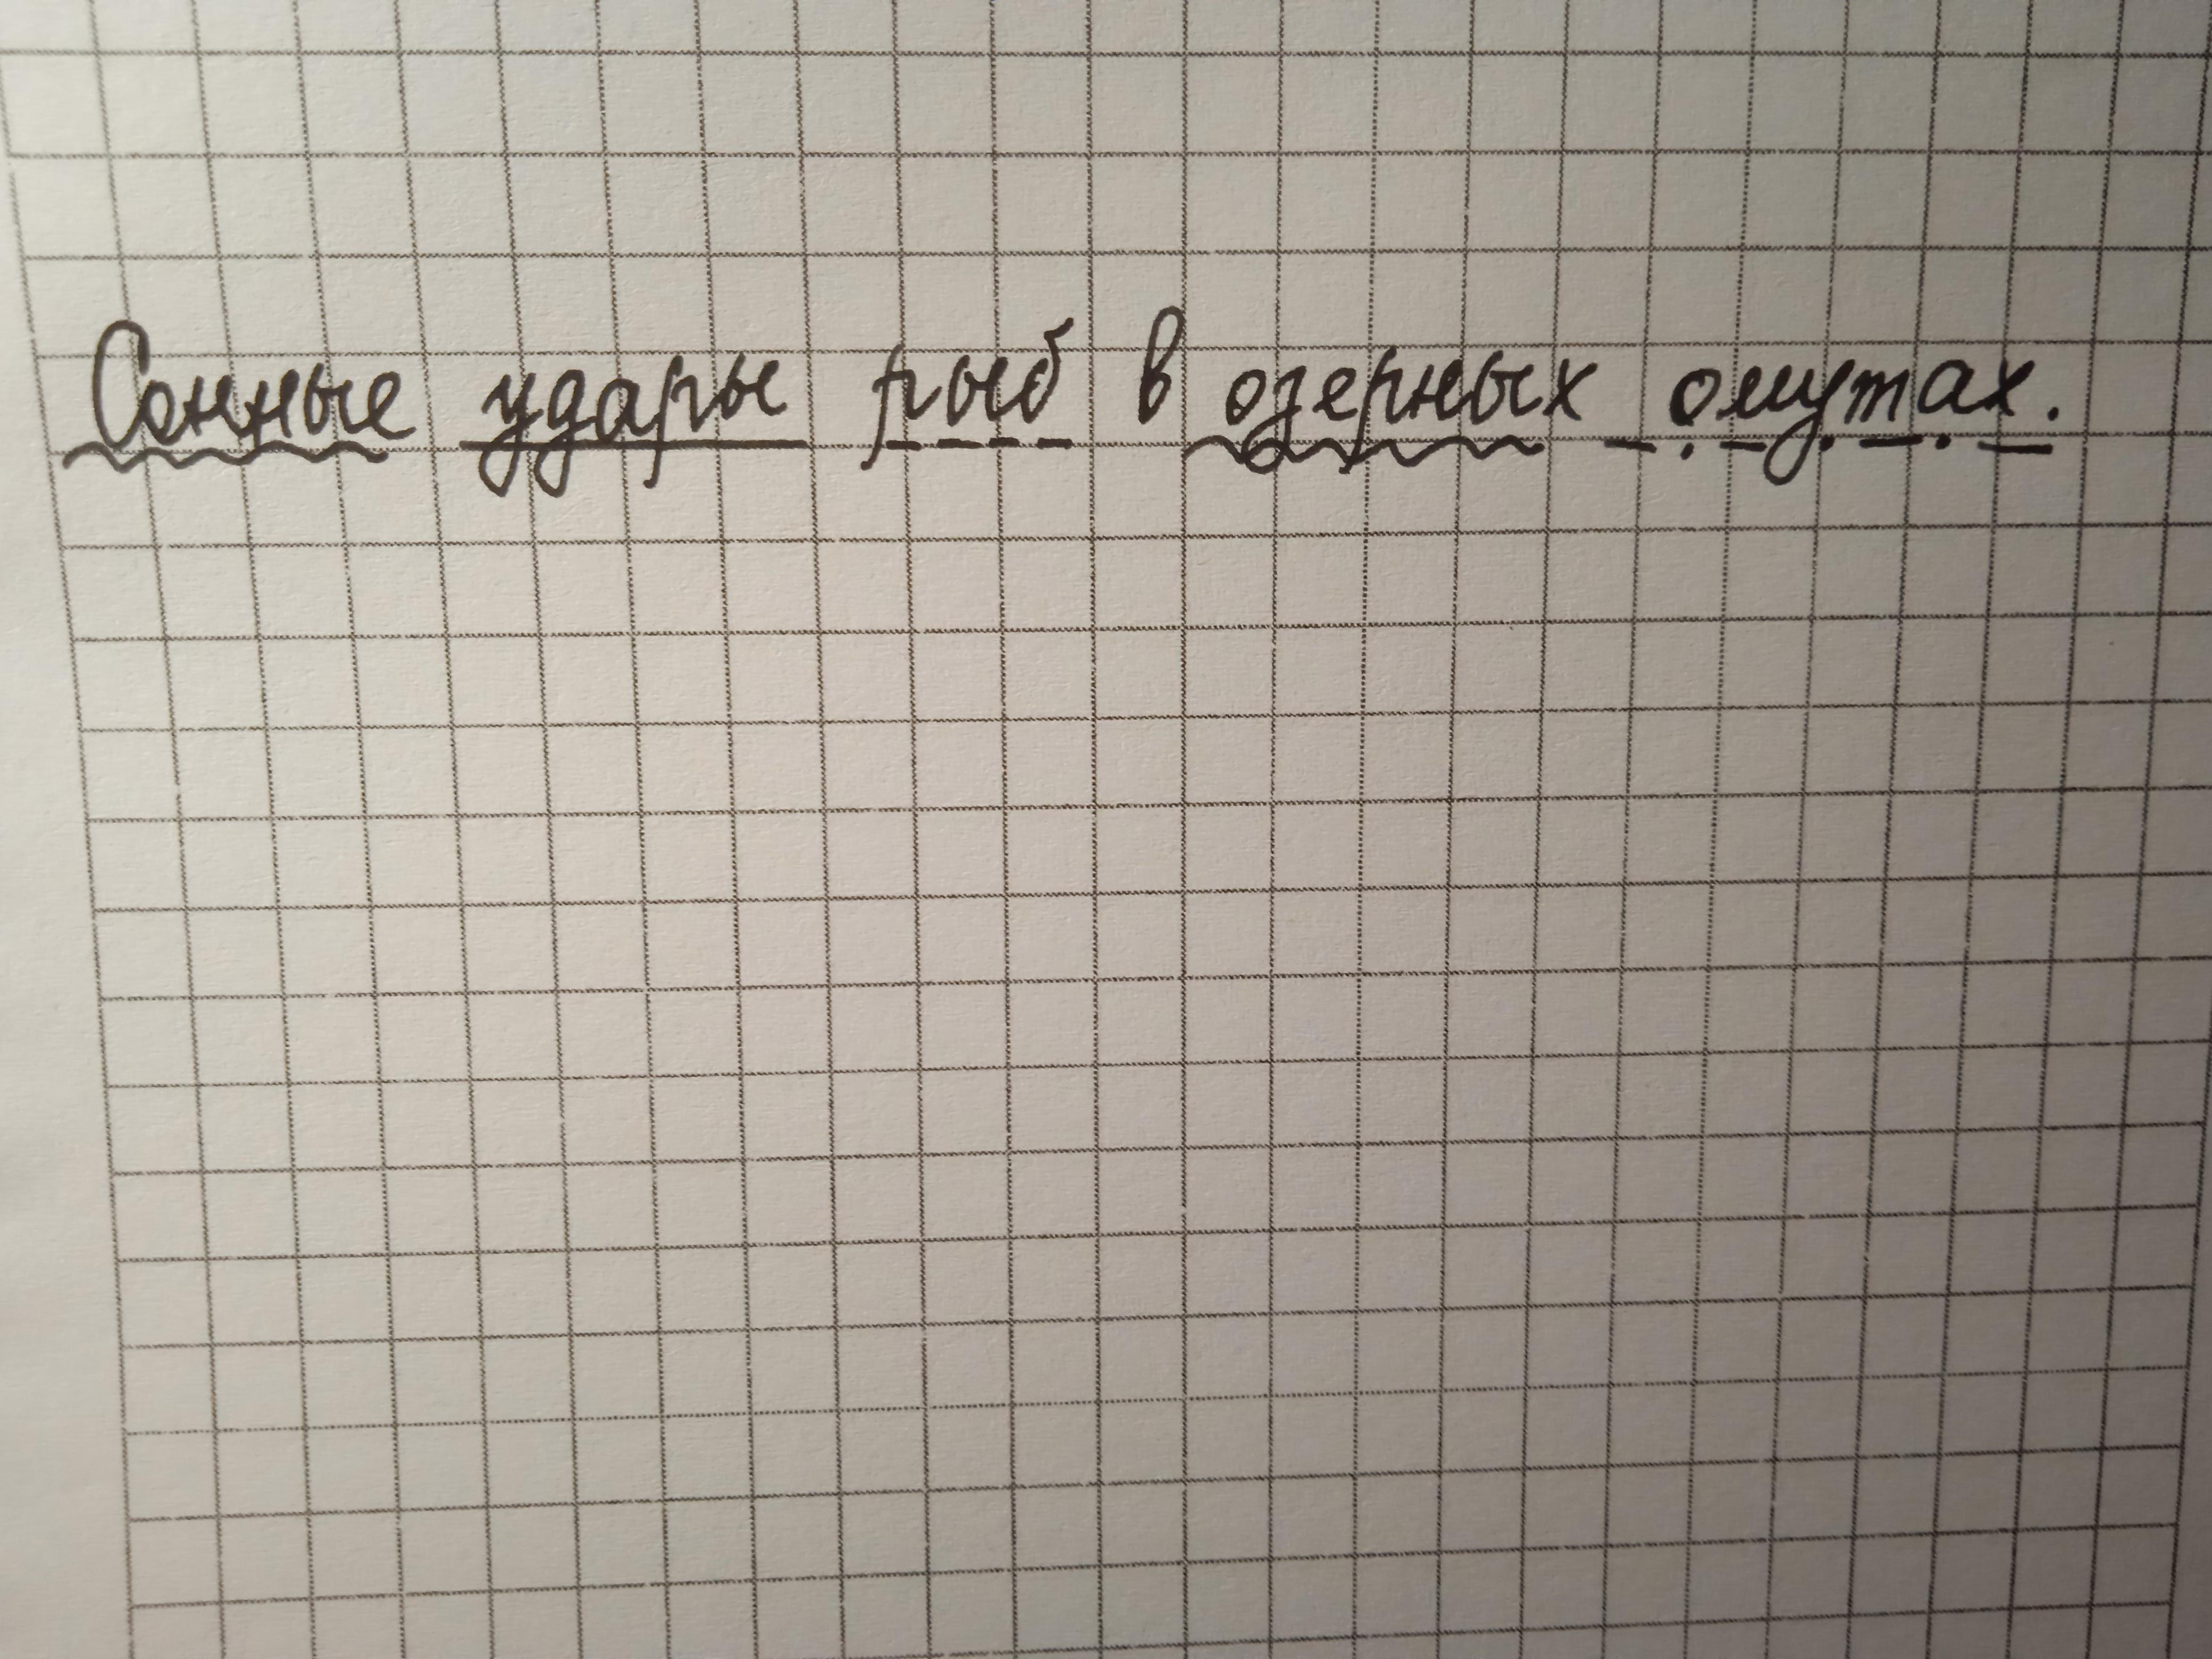 Сонные удары рыб в озерных омутах.